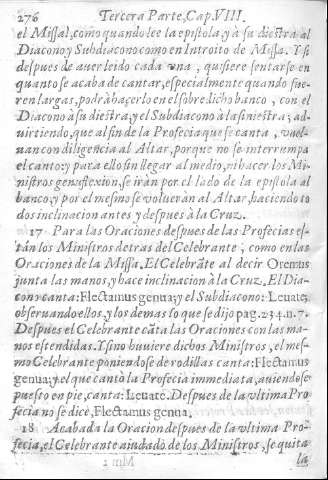 276 Tercera Parte, Cap. VIII.
el Missal, como quando lee la epistola, y à su diestra al
Diacono y Subdiacono como en Introito de Missa. Y si
despues de auer leido cada vna, quisiere sentarse en
quanto se acaba de cantar, especialmente quando fue-
ren largas, podrà hazerlo en el sobredicho banco, con el
Diacono à su diestra, y el Subdiacono à la siniestra; ad-
uirtiendo, que al fin de la Profecia que se canta, vuel-
uan con diligencia al Altar, porque no se interrumpa
el canto: y para ello sin llegar al medio, ni hacer los Mi-
nistros genuflexion, se iràn por el lado de la epistola al
banco; y por el mesmo se volueràn al Altar, haciendo to
dos inclinacion antes y despues à la Cruz.
17 Para las Oraciones despues de las Profecias es-
tàn los Ministros detras del Celebrante, como en las
Oraciones de la Missa. El Celebrãte al decir Oremus
junta las manos, y hace inclinacion à la Cruz. El Dia-
cono canta: Flectamus genua; y el Subdiacono: Leuate,
obseruando ellos, y los demas lo que se dijo pag. 234. n. 7.
Despues el Celebrante cãta las Oraciones con las ma-
nos estendidas. Y si no huuiere dichos Ministros, el mes-
mo Celebrante poniendose de rodillas canta: Flectamus
genua; y el que cantò la Profecia immediata, auiendose
puesto en pie, canta: Leuate. Despues de la vltima Pro-
fecia no se dice, Flectamus genua.
18 Acabada la Oracion despues de la vltima Pro-
fecia, el Celebrante aiudado de los Ministros, se quita
la